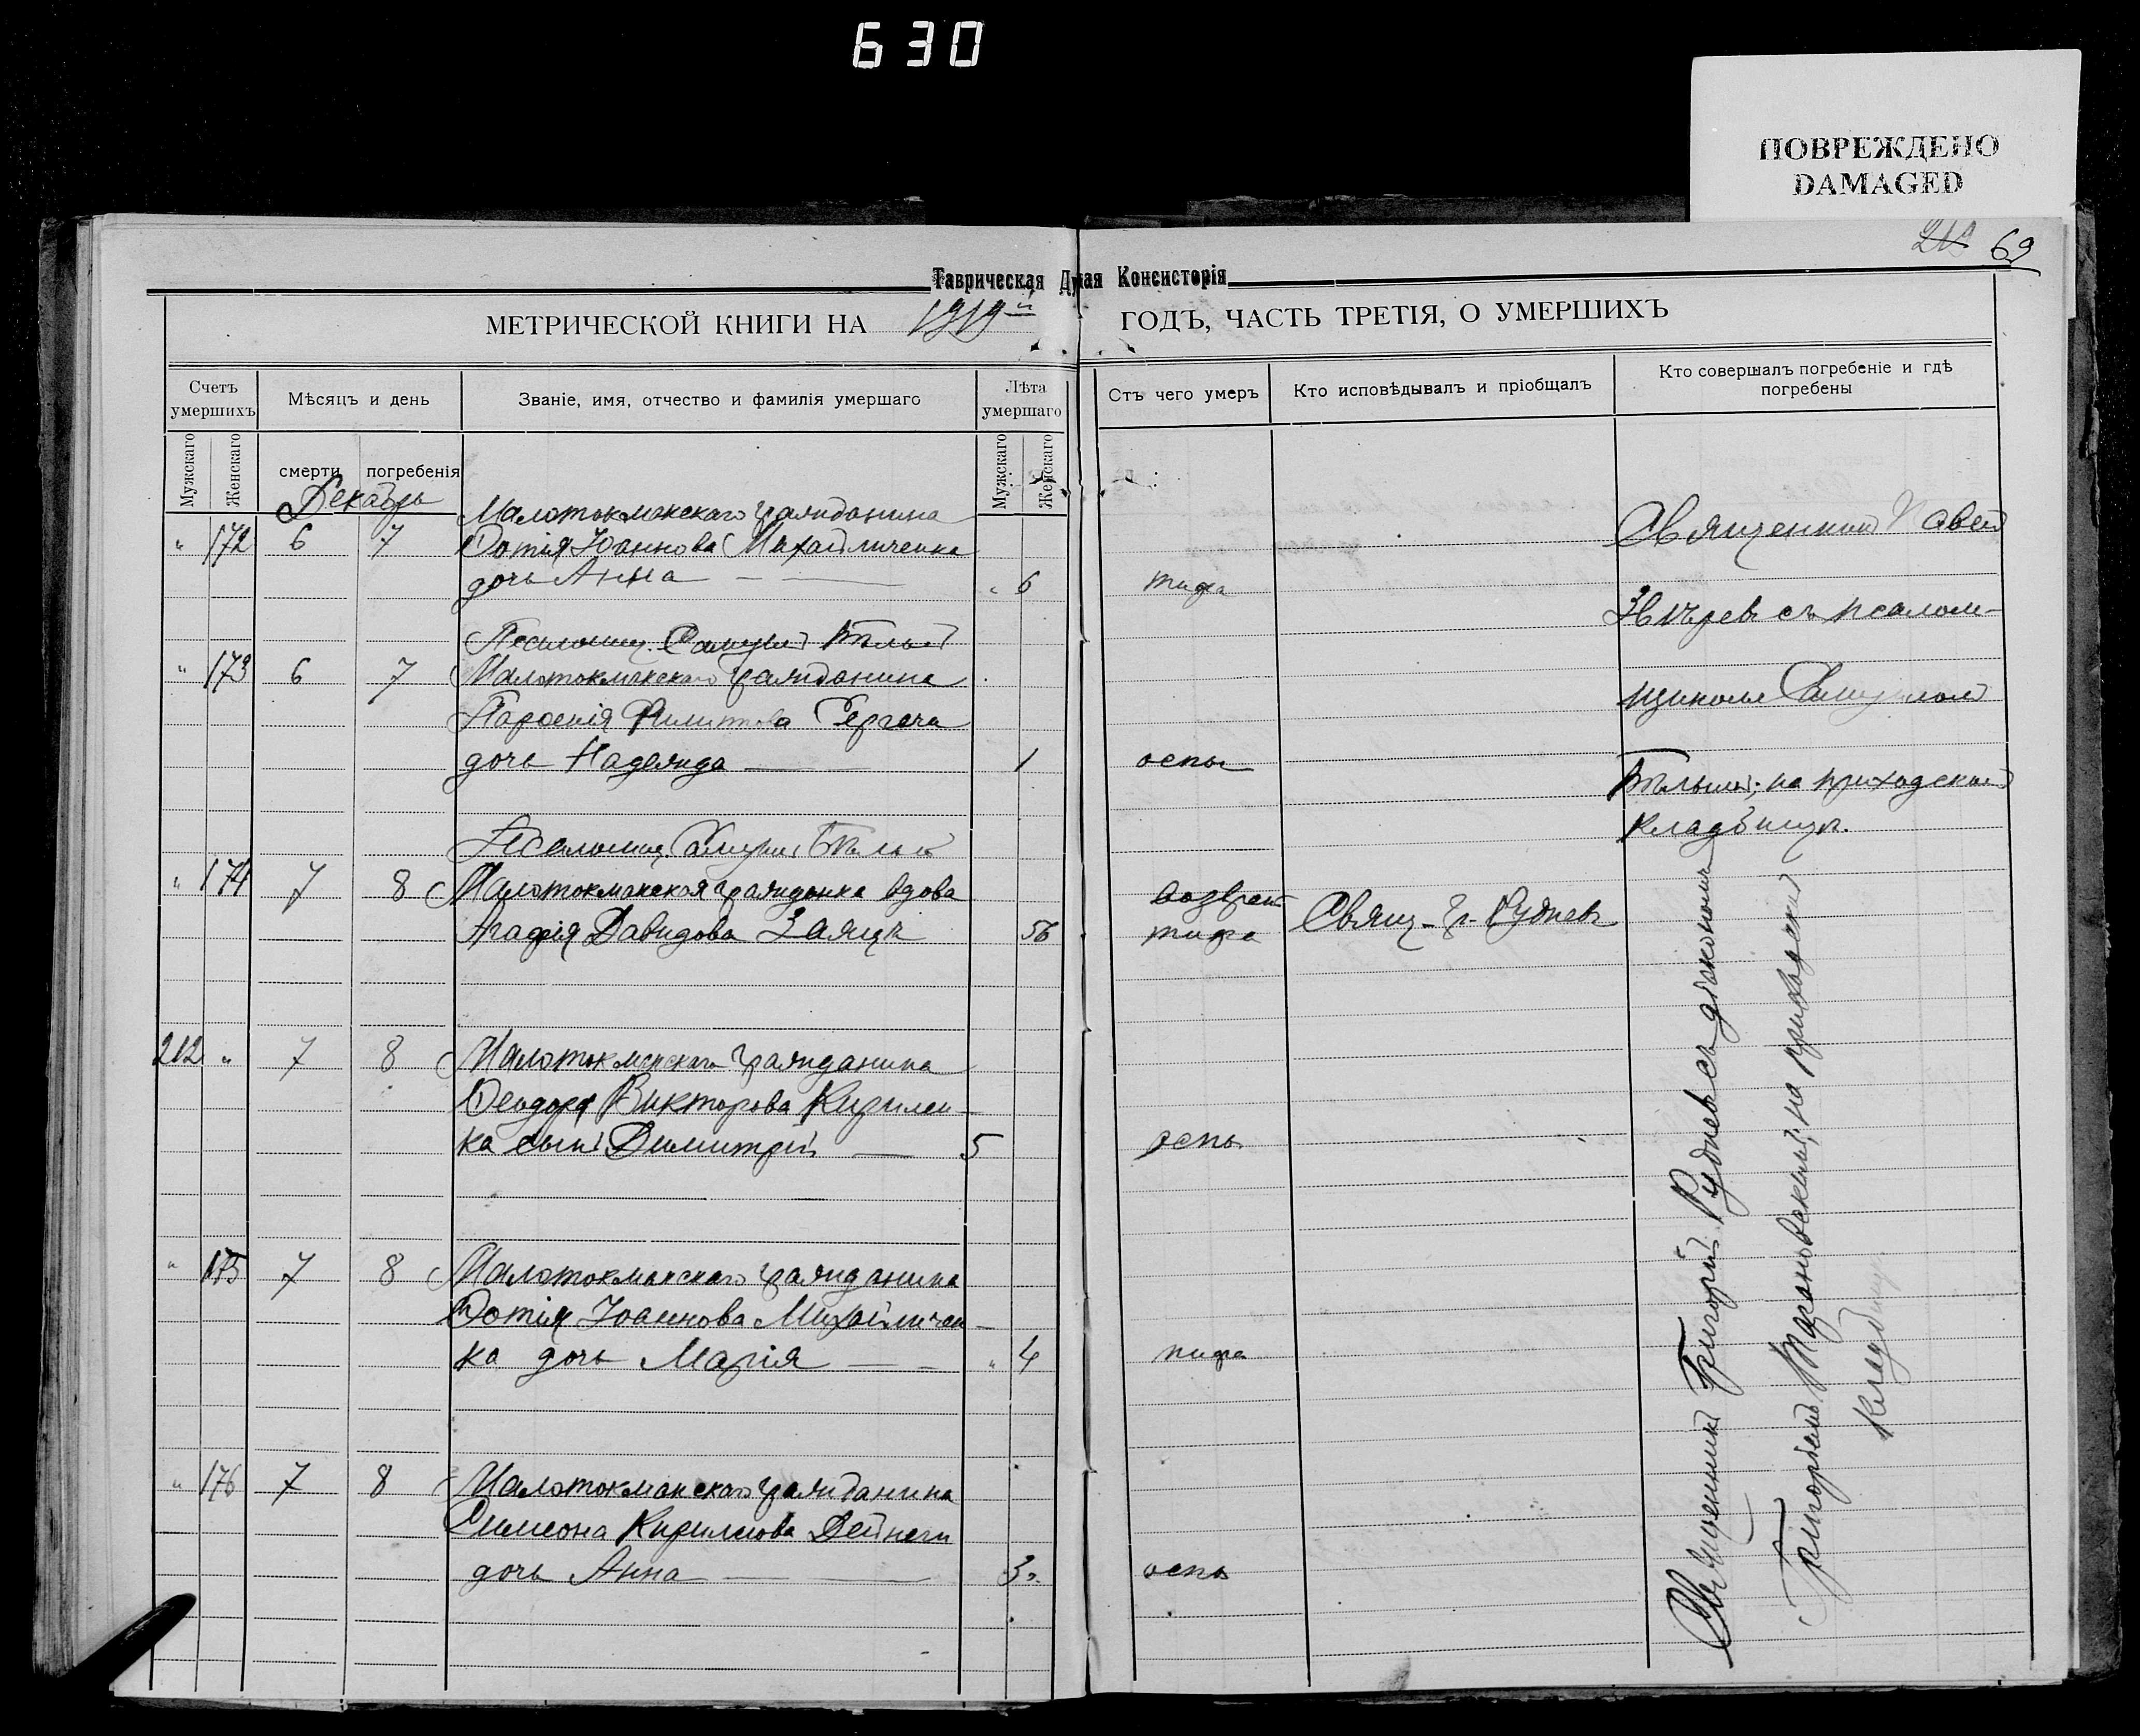 630
ПОВРЕЖДЕНО
DAMAGED
69
Таврическая Дулая Консисторія
МЕТРИЧЕСКОЙ КНИГИ НА 1919й ГОДЪ, ЧАСТЬ ТРЕТІЯ, О УМЕРШИХЪ
Счетъ умершихъ
Мѣсяцъ и день
Званіе, имя, отчество и фамилія умершаго
Лѣта умершаго
Отъ чего умеръ
Кто исповѣдывалъ и пріобщалъ
Кто совершалъ погребеніе и гдѣ погребены
Мужскаго
Женскаго
смерти
погребенія
Мужскаго
Женскаго
Декабрь
Малотокмакскаго гражданина
" 172 6 7 Фотія Іоаннова Михайличенка
дочь Анна " 6 тифа
Псаломщ. Самуил Бѣлый
" 173 6 7 Малотокмакскаго гражданина
Филиппова Сергача
дочь Надежда 1 оспы
Псаломщ. Самуил Бѣлый
" 174 7 8 Малотокмакская гражданка вдова возврат
Агафія Давидова Заяцъ 56 тифа Свящ. Гр. Рудневъ
212 " 7 8 Малотокмакскаго гражданина
Феодора Викторова Кирилен-
ка сынъ Димитрій 5 оспы
" 175 7 8 Малотокмакскаго гражданина
Фотія Іоаннова Михайличен-
ка дочь Марія " 4 тифа
" 176 7 8 Малотокмакскаго гражданина
Симеона Кириллова Дейнеги
дочь Анна 3 оспы
Священникъ Павел
Звѣревъ съ псалом-
щикомъ Самуиломъ
Бѣлымъ; на приходскомъ
кладбищѣ.
Священникъ Григорій Рудневъ съ діакономъ
Григоріемъ Тарановскимъ; на приходскомъ
кладбищѣ